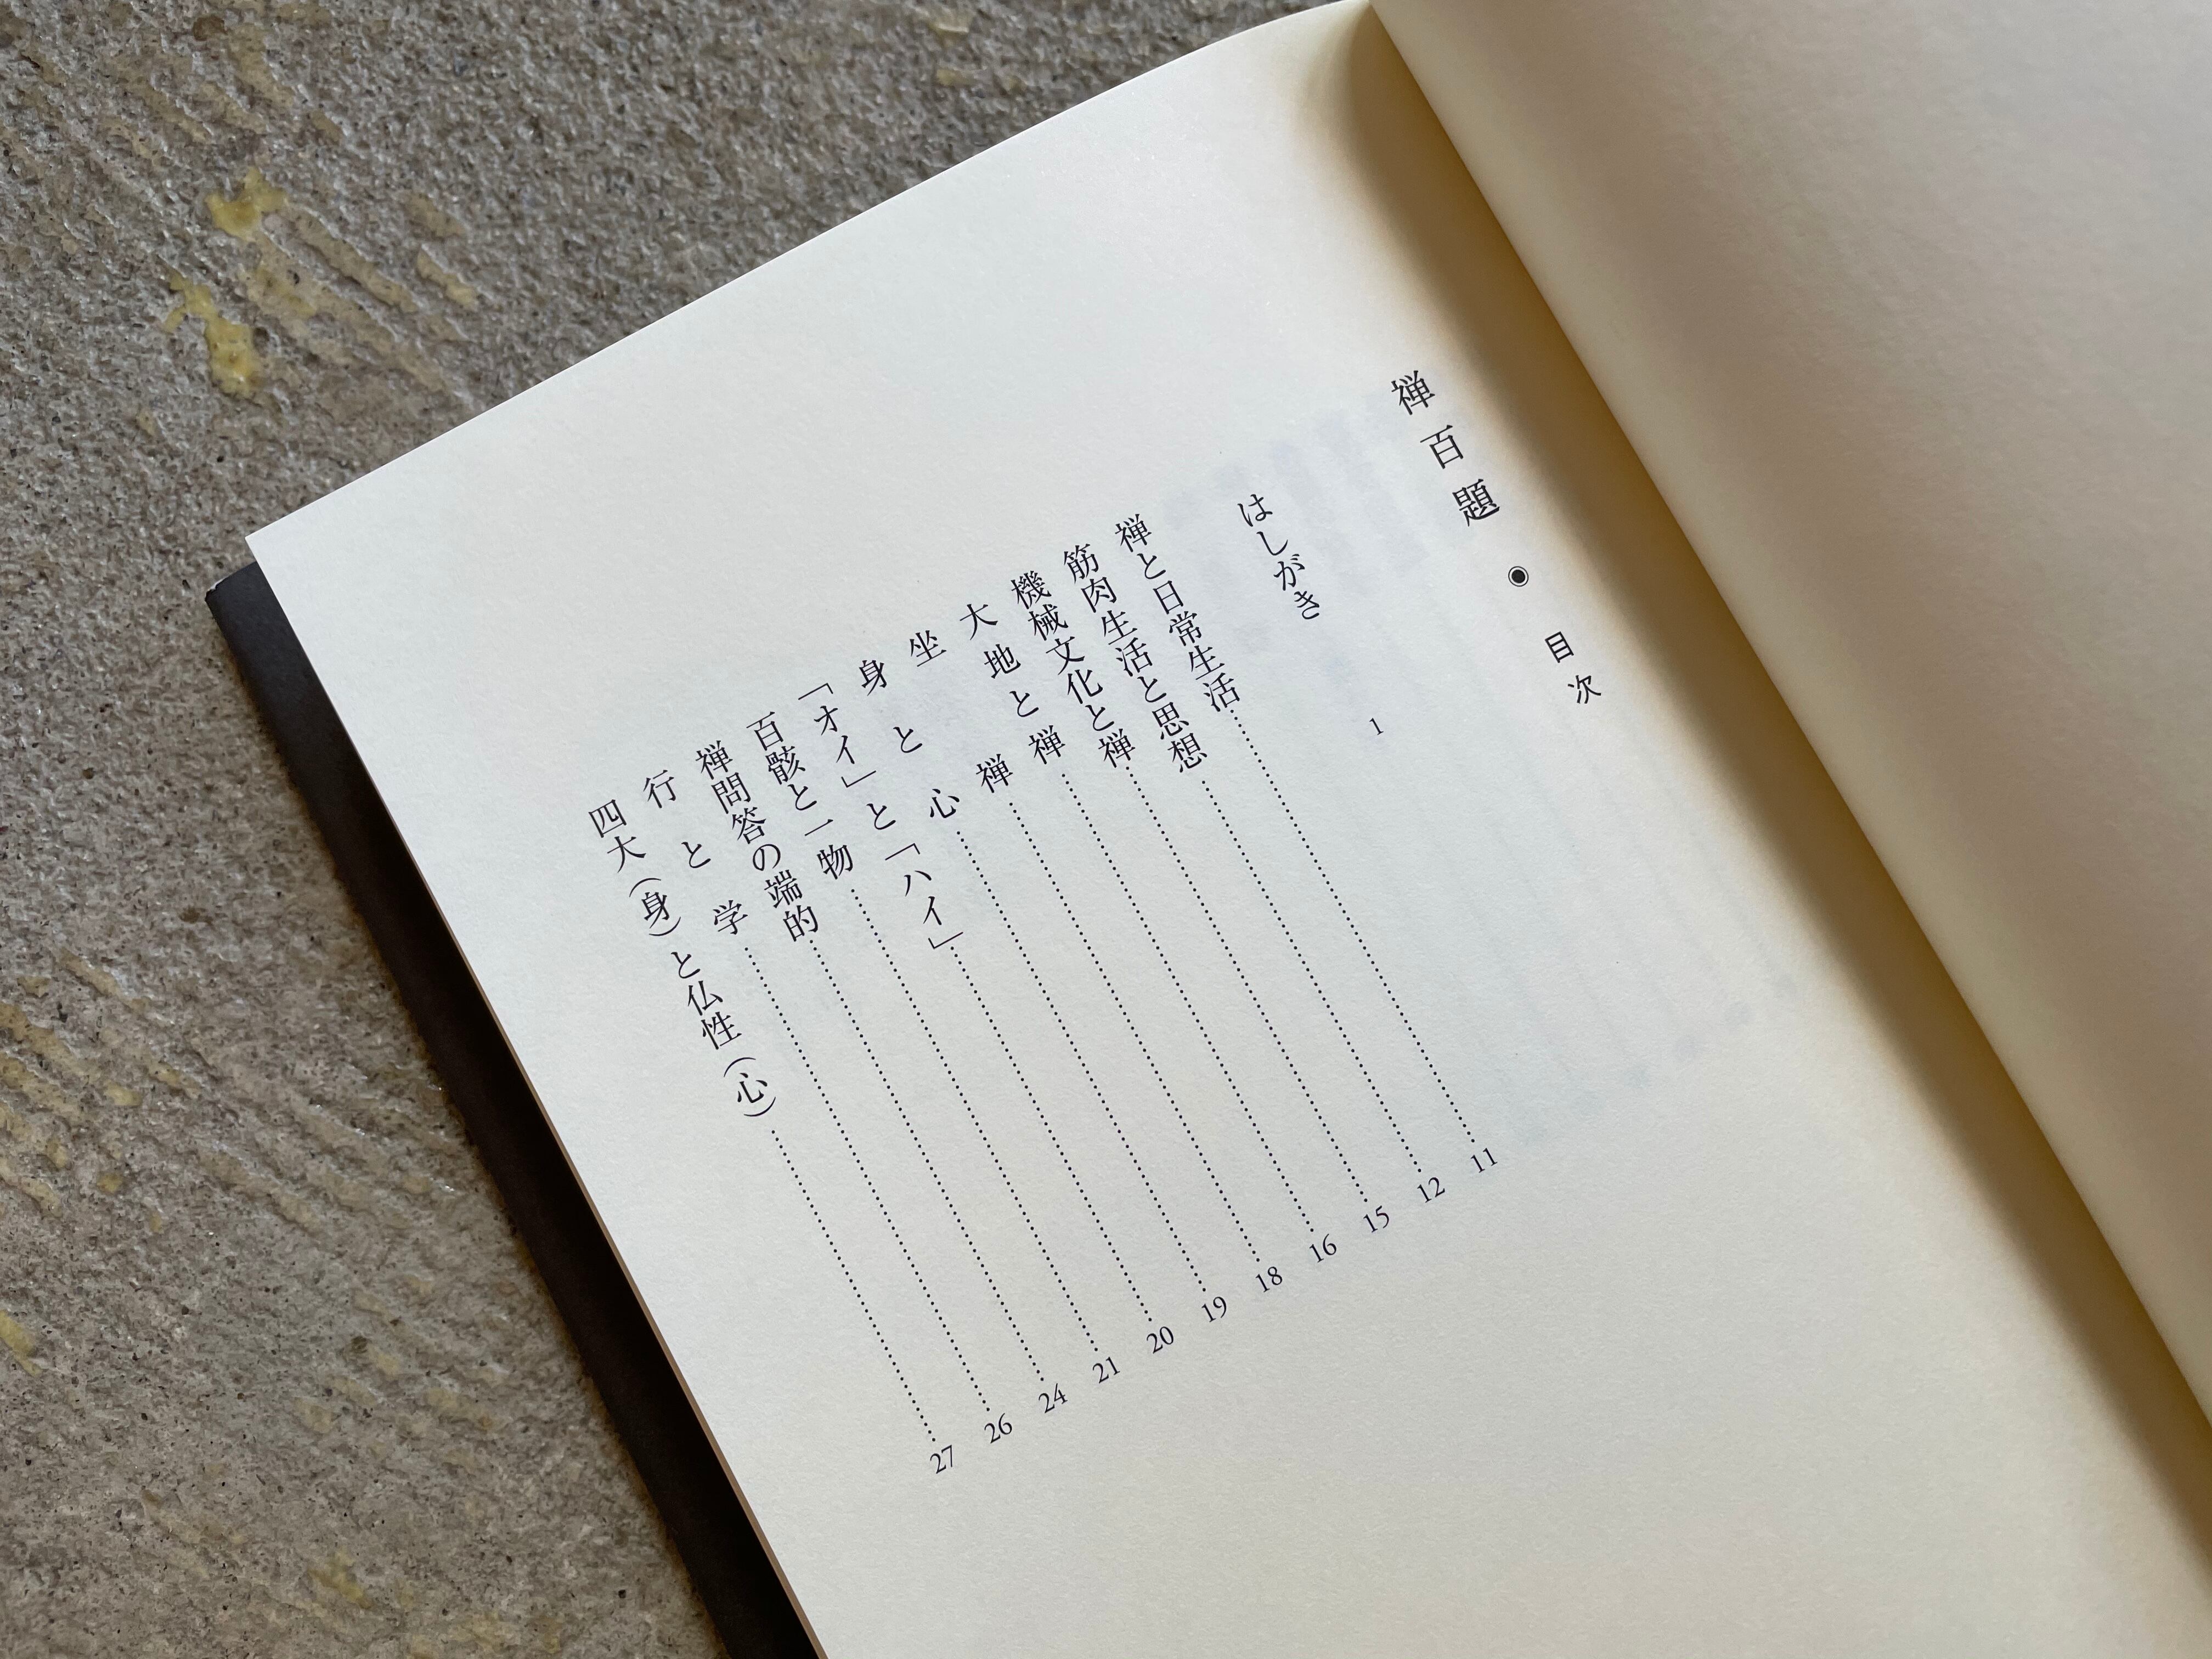 禅百題 ◉ 目次
はしがき 1
禅と日常生活……………………11
筋肉生活と思想……………………12
機械文化と禅……………………15
大地と禅……………………16
坐禅……………………18
身と心……………………19
「オイ」と「ハイ」……………………20
百骸と一物……………………21
禅問答の端的……………………24
行と学……………………26
四大（身）と仏性（心）……………………27